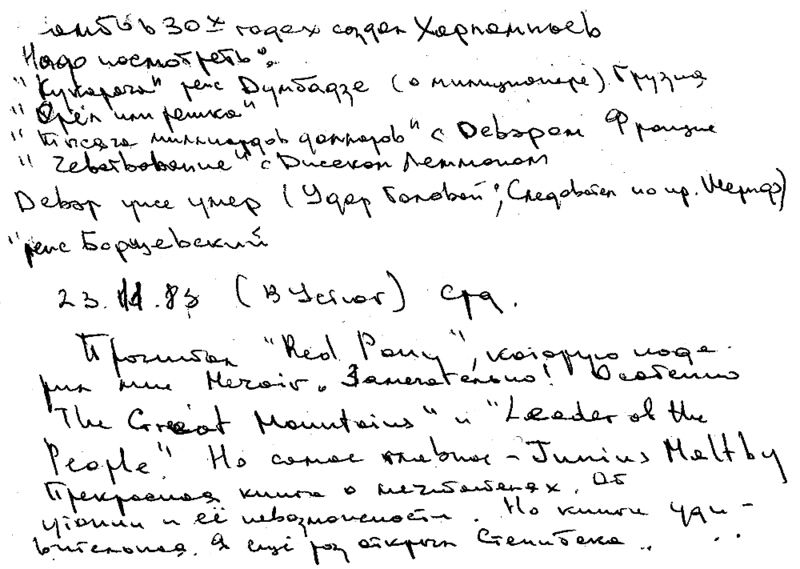 в 30х годах создал
Надо посмотреть:
"Кукарача" реж Думбадзе (о милиционере). Грузия
"Орёл или решка"
"Тысяча миллиардов долларов" с Девэром Франция
" с Джеком Леммоном
Девэр уже умер ("Удар головой", Следователь по пр. Шериф)
"реж Борщевский
23.11.83 ( ) срд.
Прочитал "Red Pony", которую пода-
рил мне . Замечательно! Особенно
"The Great Mountains" и "Leader of the
People." Но самое главное - Junius Maltby
Прекрасная книга о мечтателях. Об
утопии и её невозможности. Но книга уди-
вительная. Я ещё раз открыл Стейнбека...